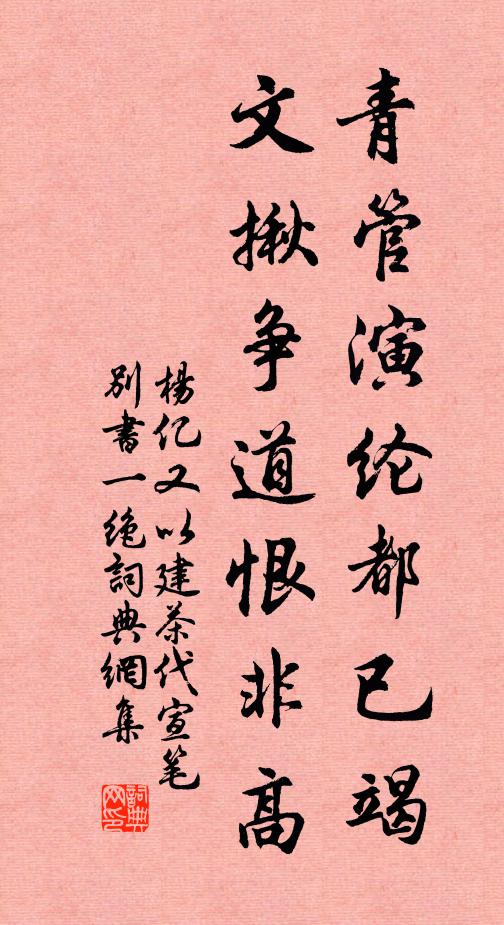 青管演纶都已竭
文揪争道恨非高
杨亿又以建茶代宣笔
别书一绝词典网集
词典网印